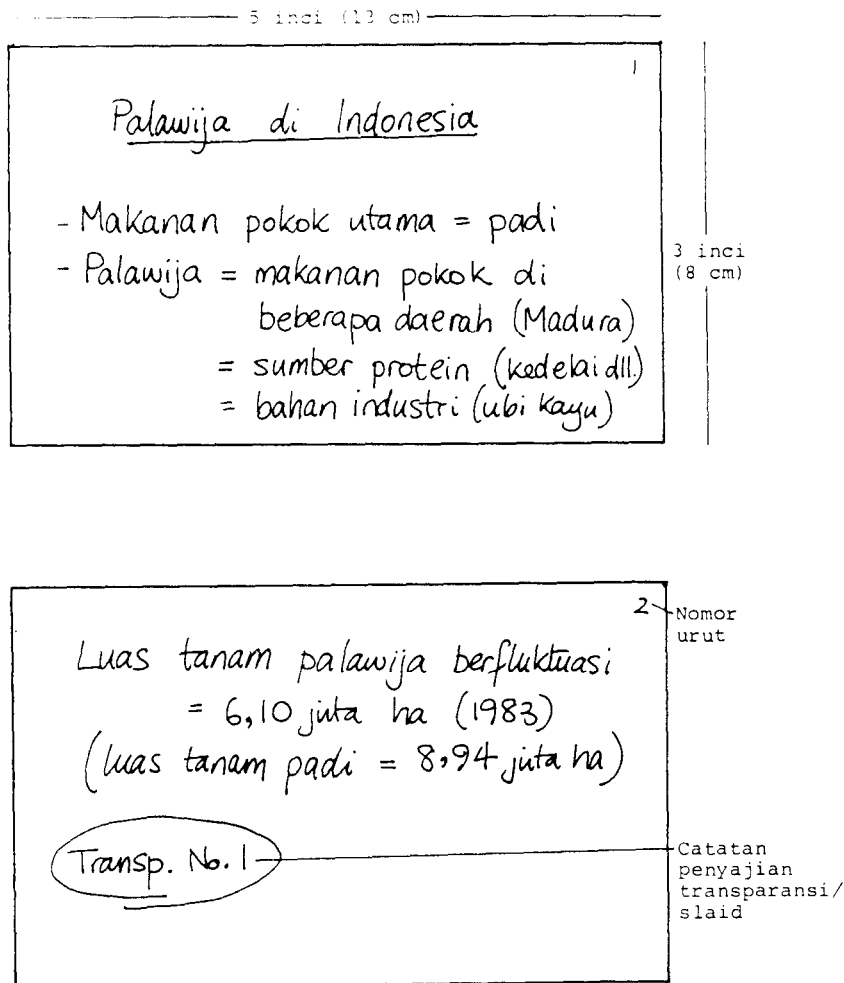 5 inci (13 cm)
1
Palawija di Indonesia
- Makanan pokok utama = padi
- Palawija = makanan pokok di
beberapa daerah (Madura)
= sumber protein (kedelai dll.)
= bahan industri (ubi kayu)
3 inci
(8 cm)
2
Nomor
urut
Luas tanam palawija berfluktuasi
= 6,10 juta ha (1983)
(luas tanam padi = 8,94 juta ha)
Transp. No. 1
Catatan
penyajian
transparansi/
slaid